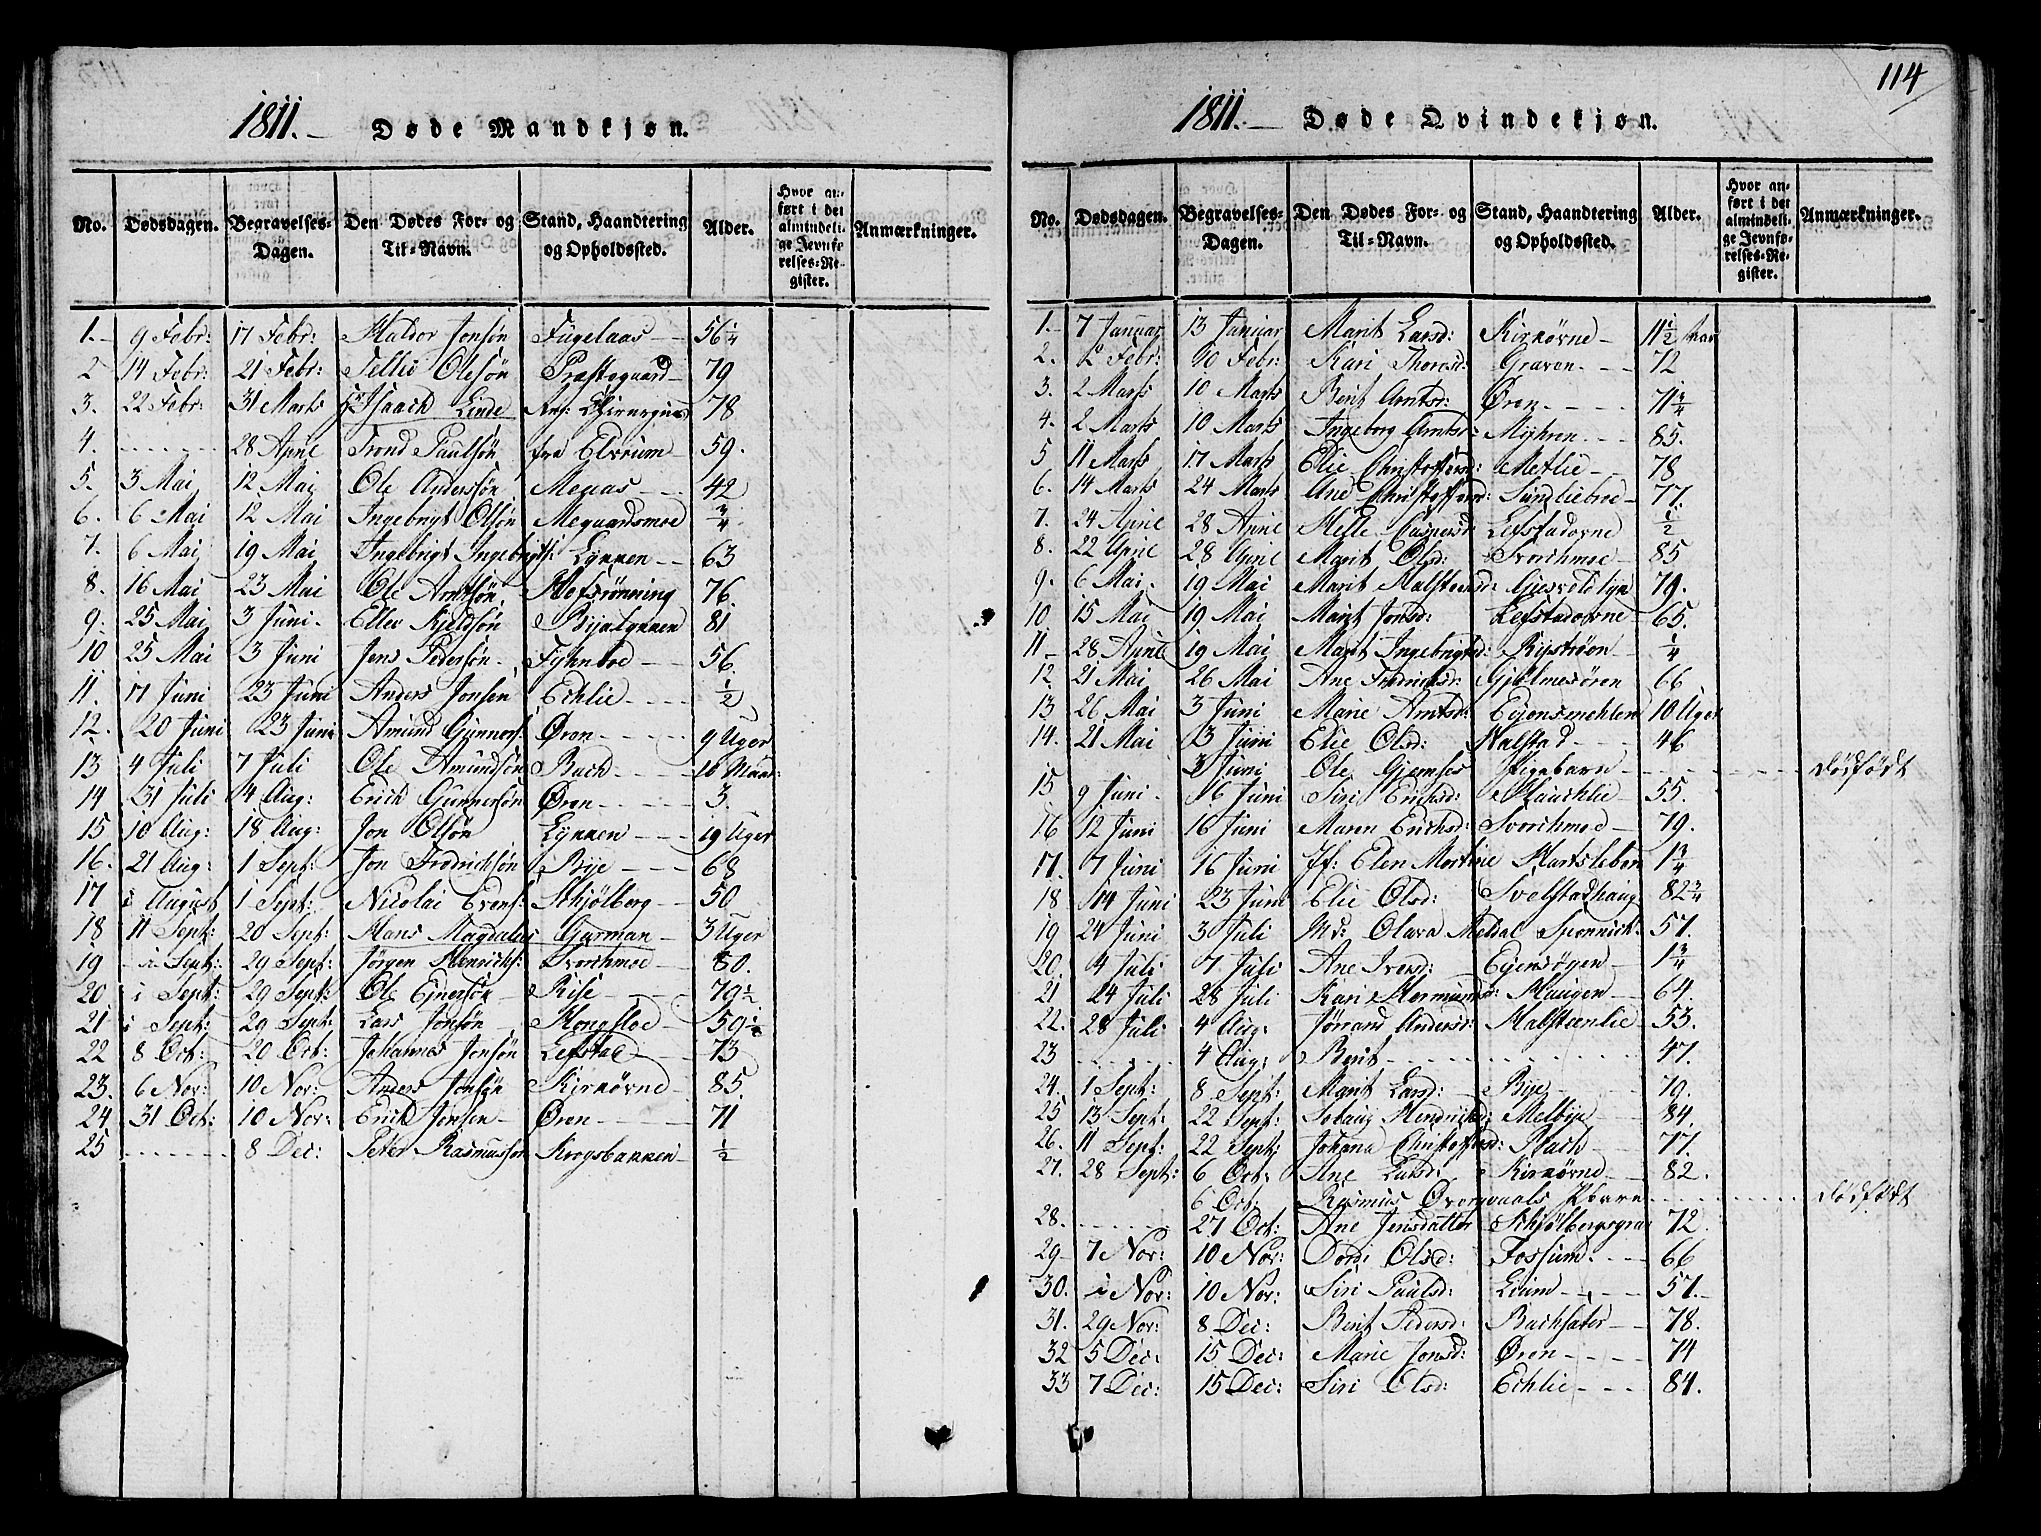 1811. Døde Mandkjøn.
No. Dødsdagen. Begravelses-Dagen. Den Dødes For- og Til-Navn. Stand, Haandtering og Opholdssted. Alder. Hvor anført i det almindelige Jevnførelses-Register. Anmærkninger.
1. 9 Febr: 17 Febr: Haldor Jonsøn Fugelaas 56 1/4
2 14 Febr: 21 Febr: Tellie Olesøn Præstegaard 79
3. 22 Febr: 31 Marts Hr Isaach Linde 78
4. 28 April Trond Paulsøn fra Elvrum 59.
5. 3 Mai 12 Mai Ole Andersøn Megaas 42
6. 6 Mai 12 Mai Ingebrigt Olsøn Megaardsmoe 3/4
7. 6 Mai 19 Mai Ingebrigt Ingebrigts: Lykken 63
8. 16 Mai 23 Mai Ole Arntsøn Hofsrønning 76
9. 25 Mai 3 Juni Eller Kjeldsøn Byalykken 81
10 25 Mai 3 Juni Jens Pedersøn Fyhnboe 56
11. 17 Juni 23 Juni Anders Jonsøn Echlie 1/2
12. 20 Juni 23 Juni Amund Gunners: Øren 9 Uger
13 4 Juli 7 Juli Ole Amundsøn Bach 16 Maan:
14 31 Juli 4 Aug: Erich Gunnersøn Øren 3.
15 10 Aug: 18 Aug: Jon Olsøn Lykken 19 Uger
16. 21 Aug: 1 Sept: Jon Fredrichsøn Bye 68
17 i August 1 Sept: Nicolai Evens: Skjølberg 50
18 11 Sept: 20 Sept: Hans Magdalus Garman 3 Uger
19 i Sept: 29 Sept: Jørgen Henrichs: Svorchmoe 80.
20 i Sept: 29 Sept: Ole Ejnersøn Rise 79 1/2
21 i Sept: 29 Sept: Lars Jonsøn Kongsloe 59 1/2
22 8 Oct: 20 Oct: Johannes Jonsøn Lefstad 73
23. 6 Nov: 10 Nov: Anders Jonsøn Kirkørne 85.
24 31 Oct: 10 Nov: Erich Jonsen Øren 71
25 8 Dec: Peter Rasmussøn Krogsbakken 1/2
114
1811. Døde Qvindekjøn.
No. Dødsdagen. Begravelses-Dagen. Den Dødes For- og Til-Navn. Stand, Haandtering og Opholdssted. Alder. Hvor anført i det almindelige Jevnførelses-Register. Anmærkninger.
1. 7 Januar 13 Januar Marit Larsd: Kirkørne 11 1/2
2. 2 Febr: 10 Febr: Kari Thoresd: Graven 72
3. 2 Marts 10 Marts Berit Arntsd: Øren 71 3/4
4. 2 Marts 10 Marts Ingeborg Arntsd: Myhren 85.
5 11 Marts 17 Marts Elie Christoffersd: Metlie 78
6. 14 Marts 24 Marts Ane Christoffersd: Sundlieboe 77.
7. 24 April 28 April Helle Caspersd: Lefstadørne 1/2
8. 22 April 28 April Marit Olsd: Svorchmoe 85
9. 6 Mai 19 Mai Marit Halsteensd: 79.
10 15 Mai 19 Mai Marit Jonsd: Lefstadørne 65.
11 28 April 19 Mai Marit Ingebrigtsd: Rystrøen 1/4
12. 21 Mai 26 Mai Ane Fredrichsd: Gjølmesøren 66
13 26 Mai 3 Juni Marie Arntsd: Eyensmehlen 10 Uger
14. 21 Mai 3 Juni Elie Olsd: Halstad 46
3 Juni Ole Gjemses Pigebarn dødfødt
15 9 Juni 16 Juni Siri Erichsd: Hauchlie 55.
16 12 Juni 16 Juni Maren Erichsd: Svorchmoe 79.
17. 7 Juni 16 Juni Jf: Elen Mortine Hartsleben 1 3/4
18 14 Juni 23 Juni Elie Olsd: Svelstadhaug 82 3/4
19 24 Juni 3 Juli Md: Olava Meldal Sponnich: 57.
20 4 Juli 7 Juli Ane Iversd: Eyensøyen 1 3/4
21 24 Juli 28 Juli Kari Hermundsd: Haugen 64.
22. 28 Juli 4 Aug: Jørrand Andersd: Halsteenlie 53.
23 4 Aug: Berit 47.
24. 1 Sept: 8 Sept: Marit Larsd: Bye 79.
25 13 Sept: 22 Sept: Solaug Hendrichsd: Melbye 84.
26. 11 Sept: 22 Sept: Johana Christoffersd: Bach 77.
27. 28 Sept: 6 Oct: Ane Larsd: Kirkørne 82.
6 Oct: Rasmus Øvergaals Pbarn dødfødt
28. 27 Oct: Ane Jensdatter Schjølbergsgran 72
29 7 Nov: 10 Nov: Dorte Olsd: Fossum 66
30. i Nov: 10 Nov: Siri Paulsd: Lium 57.
31. 29 Nov: 8 Dec: Berit Pedersd: Bachsæter 78.
32 5 Dec: 15 Dec: Marie Jonsd: Øren 74
33 7 Dec: 15 Dec: Siri Olsd: Echlie 84.